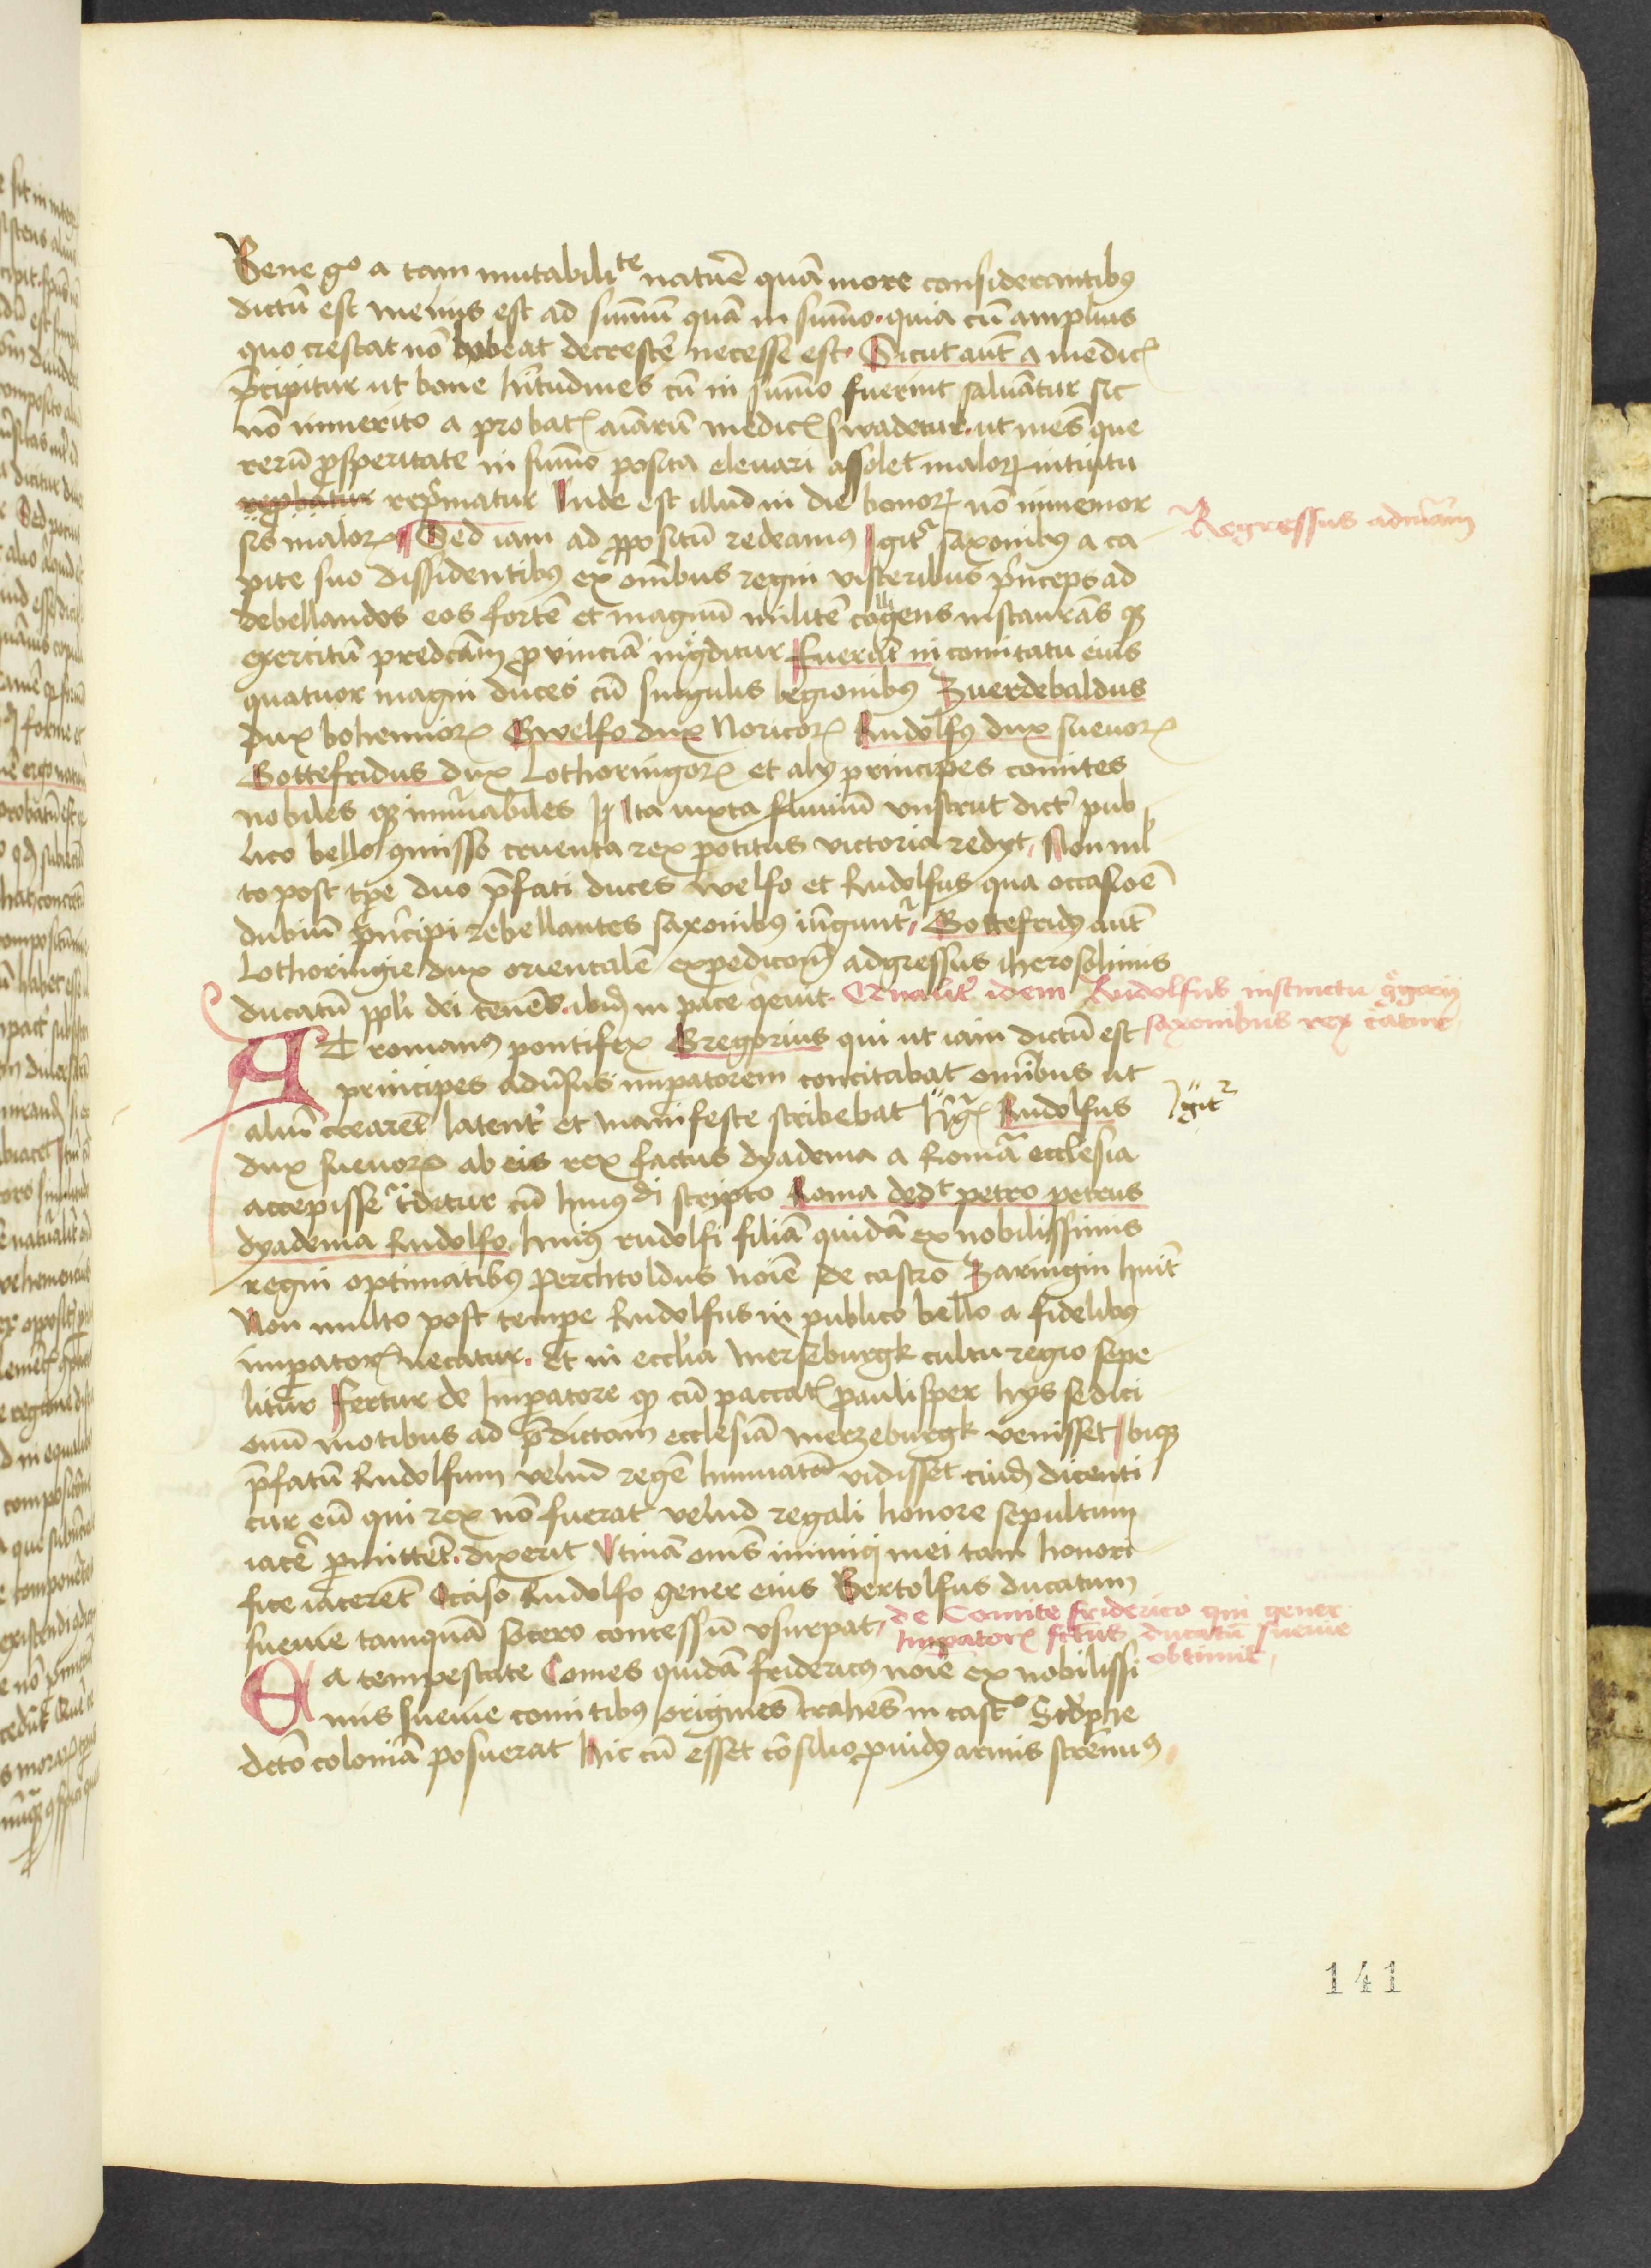 Bene gͦ a tam mutabiliᵗᵉ natur̄e quā more considerantibꝰ
dictū est melius est ad sum̄ū quā in sum̄o. quia cū amplius
quo crescat nō habeat decrescē necesse est. Sicut aut̄ a medicꝭ
p̄cipitur ut bone h̓itudines cū in sum̄o fuerint saluātur sic
nō inmerito a probatꝭ aīarū medicꝭ swadetur. ut mēs que
rerū ꝓsperitate in sum̄o posita eleuari assolet maloꝝ intuitu
rep̓matur Inde est illud in die bonoꝝ nō inmemor
sis maloꝝ Sed iam ad ꝓpositū redeamꝰ Igit᷑ saxonibꝰ a ca
pite suo dissidentibꝰ ex om̄ibus regni visceribus p̓nceps ad
debellandos eos fortē et magnū militē collig̓ens instaurās qꝫ
exercitū predcām ꝓvinciā ing̓ditur Fuerūt in comitatu eius
quatuor magni duces cū singulis legionibꝰ Zuerdebaldus
dux bohemioꝝ Gwelfo dux Noricoꝝ Rudolfꝰ dux sueuoꝝ
Gottefridus dux Lothoringoꝝ et aly principes comites
nobiles qꝫ innūabiles Ita iuxta fluuiū vnstrut dict᷑ pub
lico bello ꝯmisso cruenta rex potitus victoria redyt, Non ml̄
to post tp̄e duo p̄fati duces Welfo et Rudolfus qua occasioē
dubiū p̓ncipi rebellantes saxonibꝰ iūgunt᷑, Gottefridꝰ aut̄
Lothoringie dux orientalē expedicōm̄ adgressus iherosolimis
ducatū ppl̓i dei tenēs. ibid̄ in pace q̓euit. Qualit̓ idem Rudolfus instinctu g̓gorij
saxonibus rex c̓atur
Regressus ad
AT romanꝰ pontifex Gregorius qui ut iam dictū est
principes adūsus imꝑatorem concitabat om̄ibus ut
aliū crearēt latent̓ et manifeste scribebat Rudolfus
Igit᷑
dux sueuoꝝ ab eis rex factus dyadema a Romā ecclesia
accepisse t̓ditur cū huiꝰdi scripto Roma dedᵗ petro petrus
dyadema Rudolfo. huiꝰ rudolfi filiā quidā ex nobilissimis
regni optimatibꝰ Perchtoldus noīe de castro Zaringin huit̄
Non multo post tempe Rudolfus in publico bello a fidelibꝰ
imꝑatorꝭ necatur. Et in eccl̓ia Merseburgk cultu regio sepe
litur Fertur de Imperatore qꝫ cū paccatꝭ paulisper hys sedici
onū motibus ad p̄dictam ecclesiā merzeburgk venisset ibiqꝫ
p̄fatū Rudolfum velud regē humatū vidisset cuid̄ dicenti
cur eū qui rex nō fuerat velud regali honore sepultum
iacē ꝑmittet̓. dixerit Vtinā om̄s inimici mei tam honori
fice iacerēt Occiso Rudolfo gener eius Bertolfus ducatum
sueuie tamquā socero concessū vsurpat, de Comite friderico qui gener
Imꝑatorꝭ fc̄tus ducatū sueuie
obtinuit,
EA tempestate Comes quidā fridericꝰ noīe ex nobilissi
mis sueuie comitibꝰ originēs trahēs in castͦ Stōphe
dcō coloniā posuerat Hic cū esset cōsilio ꝓuidꝰ armis strenuꝰ,
141